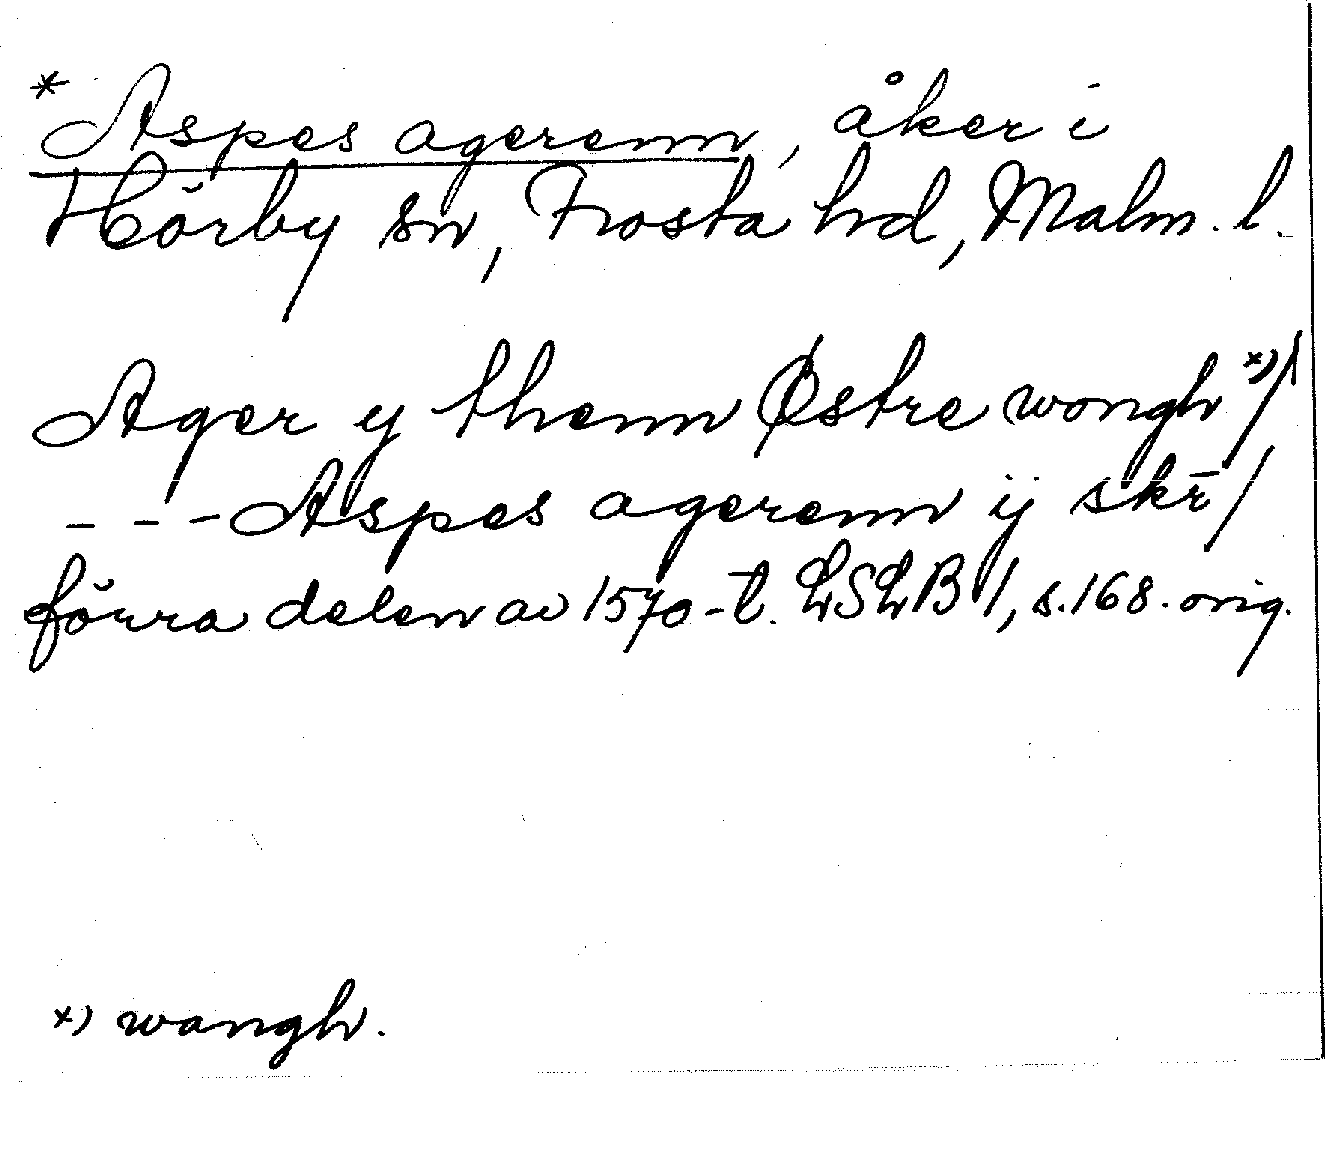 * Aspes agerenn, åker i
Hörby sn, Frosta hd, Malm. l.
Ager y thenn Østre wongh *)/
- - - Aspes agerenn ij skr̄/
förra delen av 1570-t. LSLB I, s. 168. orig.
*) wangh.